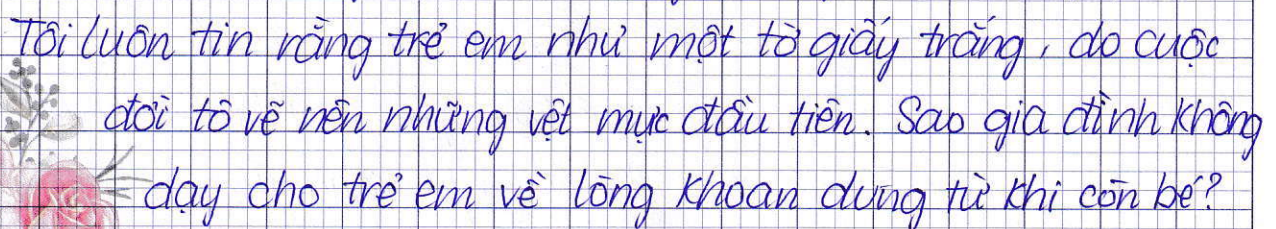 Tôi luôn tin rằng trẻ em như một tờ giấy trắng, do cuộc
đời tô vẽ nên những vệt mực đầu tiên. Sao gia đình không
dạy cho trẻ em về lòng khoan dung từ khi còn bé?